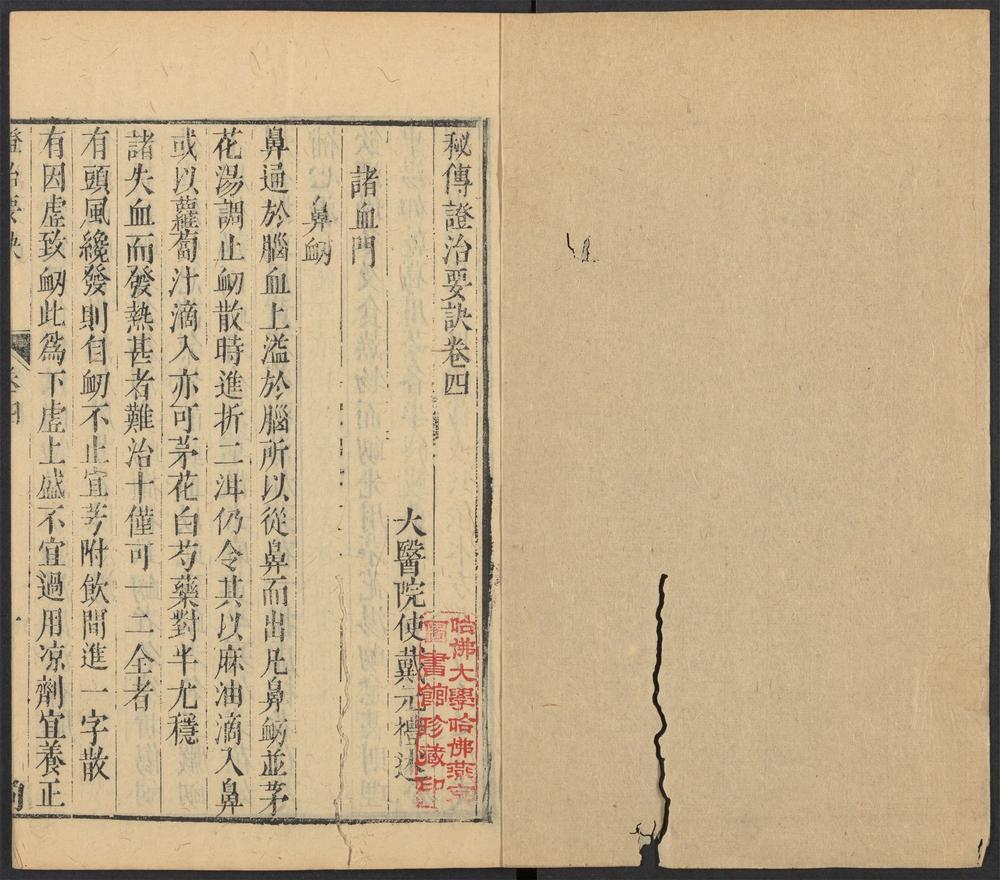 秘傳證治要訣卷四
大醫院使戴元禮述
諸血門
鼻衂
鼻通於腦血上溢於腦所以從鼻而出凡鼻衂並茅
花湯調止衂散時進折二泔仍令其以麻油滴入鼻
或以蘿蔔汁滴入亦可茅花白芍藥對半尤穩
諸失血而發熱甚者難治十僅可一二全者
有頭風纔發則自衂不止宜芎附飲間進一字散
有因虛致衂此爲下虛上盛不宜過用凉劑宜養正
證治要訣 卷四 一
哈佛大學哈佛燕京
圖書館珍藏印